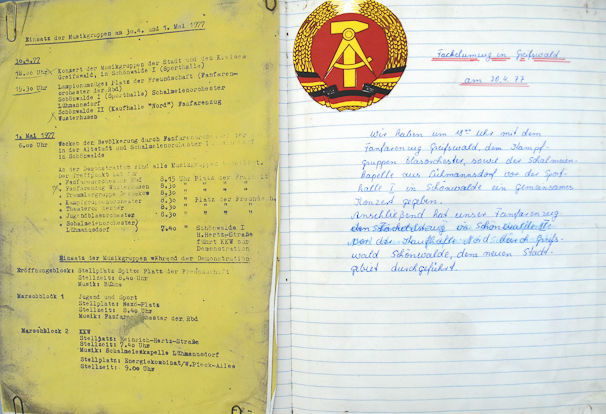 Einsatz der Musikgruppen am 30.4. und 1. Mai 1977
30.4.77
18.00 Uhr Konzert der Musikgruppen der Stadt und des Kreises
Greifswald, in Schönwalde I (Sporthalle)
19.30 Uhr Lampionumzug: Platz der Freundschaft (Fanfaren-
orchester der Rbd)
Schönwalde I (Sporthalle) Schalmeienorchester
Lühmannsdorf
Schönwalde II (Kaufhalle "Nord") Fanfarenzug
Wusterhusen
1. Mai 1977
6.00 Uhr Wecken der Bevölkerung durch
in der Altstadt und Schalmeienorchester
in Schönwalde
An der Demonstration sind alle Musikgruppen beteiligt.
Der Treffpunkt ist für
. Fanfarenorchester Rbd 8.15 Uhr Platz der
. Fanfarenzug Wusterhusen 8.30 " " " "
. Trommlergruppe 8.30 " " " "
. Kampfgruppenorchester 8.30 " Platz der
. Theaterorchester 8.30 " " " "
. Jugendblasorchester 8.30 " " " "
. Schalmeienorchester)
Lühmannsdorf ) 7.40 " Schönwalde I
H.Hertz-Straße
führt KKW zum
Demonstration
Einsatz der Musikgruppen während der Demonstration
Eröffnungsblock: Stellplatz Spitze Platz der Freundschaft
Stellzeit: 8.40 Uhr
Musik: Bühne
Marschblock 1 Jugend und Sport
Stellplatz: Platz
Stellzeit: 8.40 Uhr
Musik: Fanfarenorchester der Rbd
Marschblock 2 KKW
Stellplatz: Heinrich-Hertz-Straße
Stellzeit: 7.40 Uhr
Musik: Schalmeienkapelle Lühmannsdorf
Stellplatz: Energiekombinat/W.Pieck-Allee
Stellzeit: 9.00 Uhr
Fackelumzug in Greifswald
am 30.4.77
Wir haben um 18°° Uhr mit dem
Fanfarenzug Greifswald, dem Kampf-
gruppen Blasorchester, sowie der Schalmeien-
kapelle aus Lühmannsdorf vor der
halle I in Schönwalde ein gemeinsames
Konzert gegeben.
Anschließend hat unser Fanfarenzug
den Fackelumzug von Schönwalde II
von der Kaufhalle Nord durch Greifs-
wald Schönwalde, dem neuen Stadt-
gebiet durchgeführt.